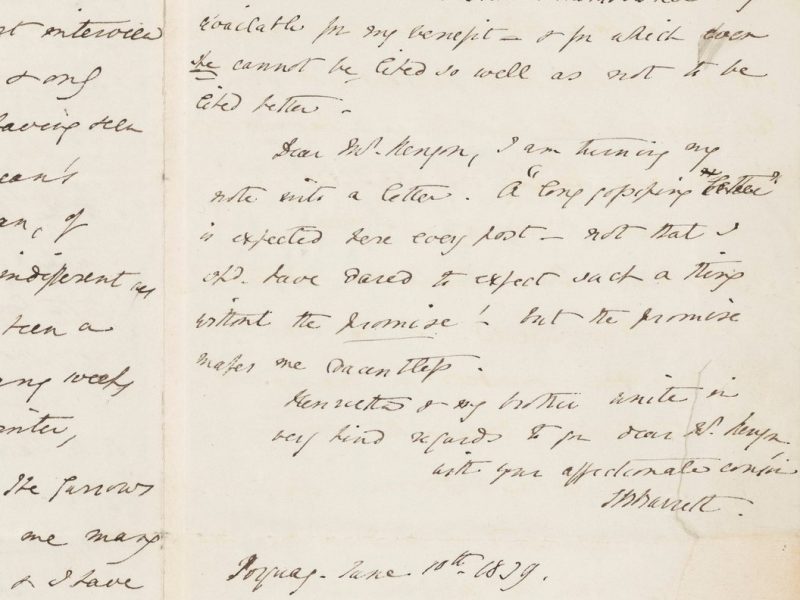 st interview
& my
having seen
ean's
an, of
indifferent as
seen a
ing weeks
inter,
The furrows
me many
& I have
available for my benefit — & for which even
he cannot be liked so well as not to be
liked better —
Dear Mr. Kenyon, I am turning my
note into a letter. A "long gossiping
is expected here every post — not that I
shd. have dared to expect such a thing
without the promise! — but the promise
makes me dauntless.
Henrietta & my brother unite in
very kind regards to you dear Mr. Kenyon,
with your affectionate cousin
EBBarrett.
Torquay — June 10th 1839.